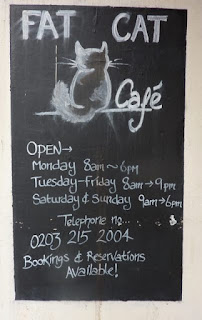 FAT CAT
Café
OPEN→
Monday 8am~6pm
Tuesday-Friday 8am→9pm
Saturday & Sunday 9am→6pm
Telephone no...
0203 215 2004
Bookings & Reservations
Available!